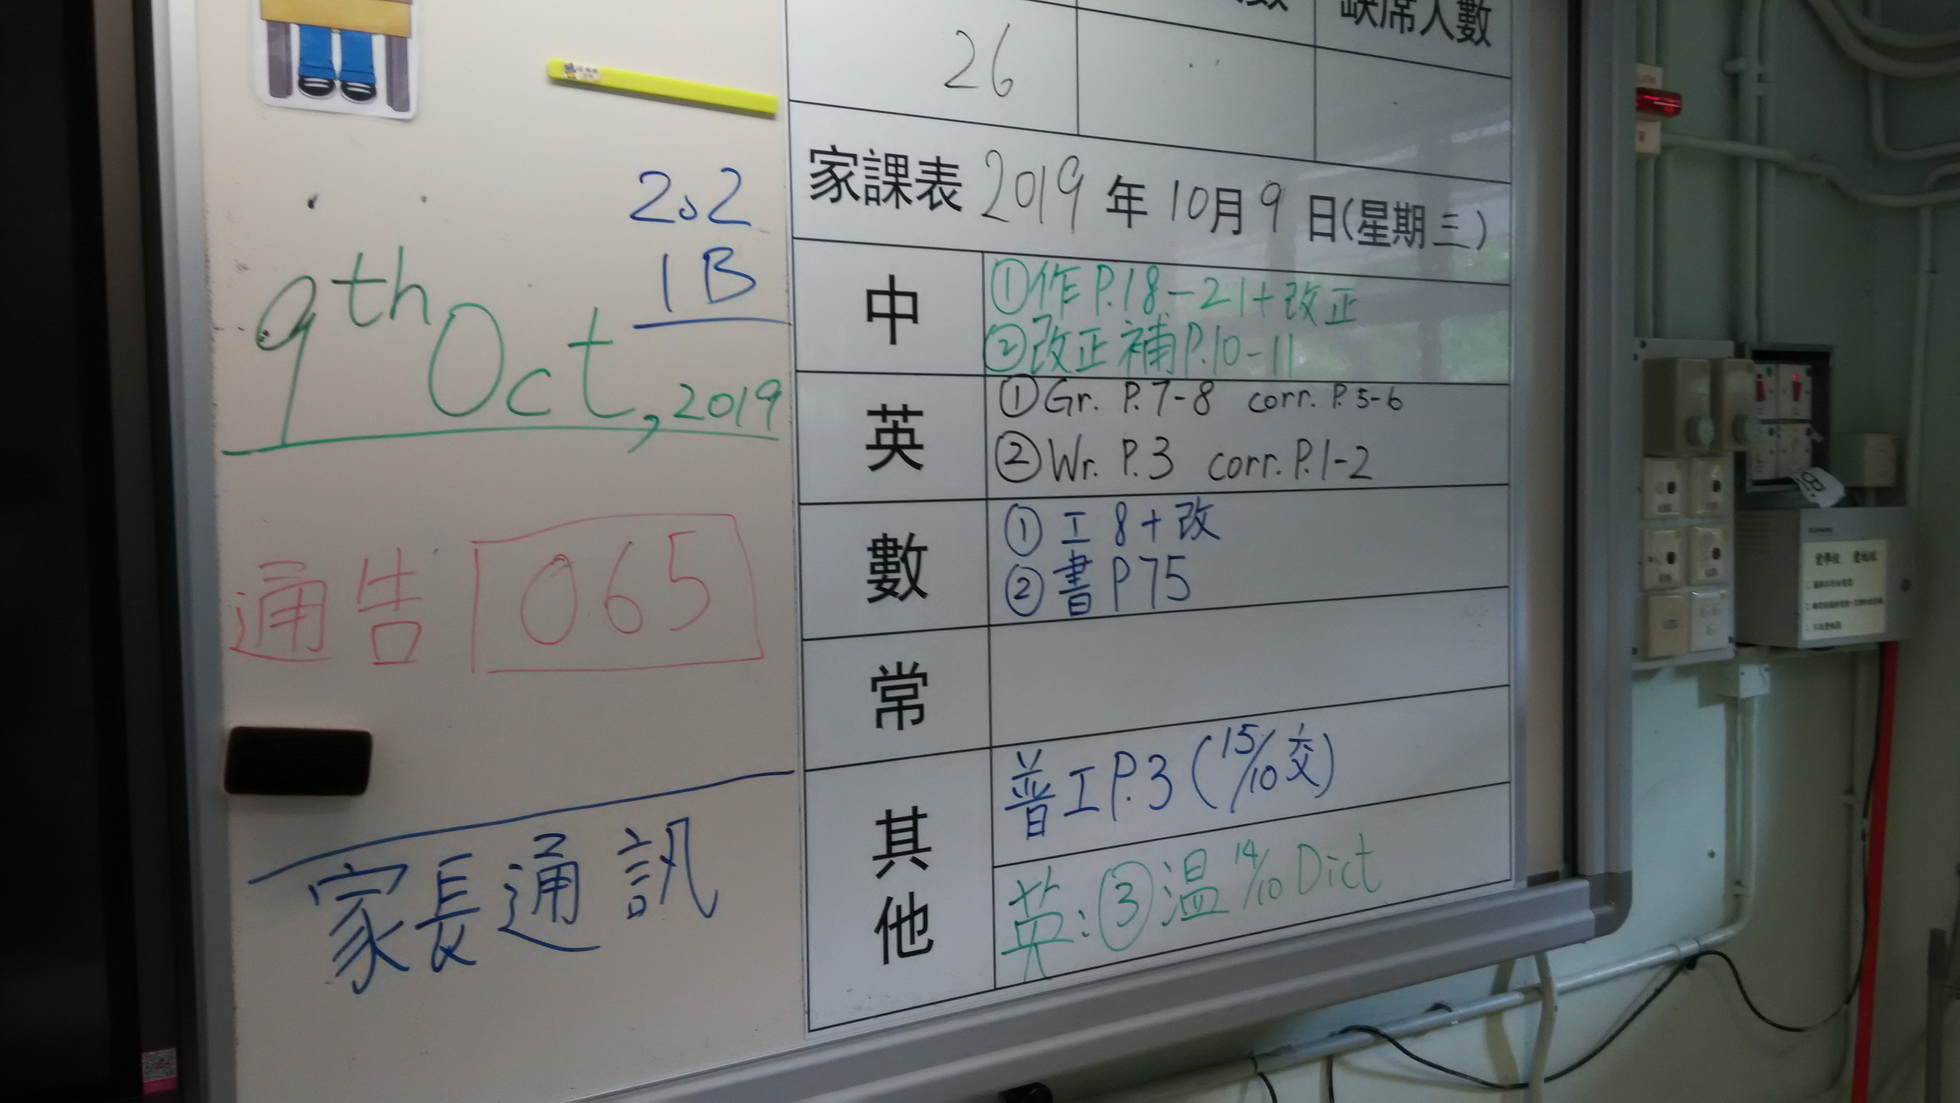 2.2
1B
9th Oct, 2019
通告 065
家長通訊
缺席人數
26
家課表 2019 年 10月 9 日(星期三)
中
①作P.18-21+改正
②改正補P.10-11
英
①Gr. P.7-8 corr. P.5-6
②Wr. P.3 corr. P.1-2
數
①工8+改
②書P75
常
其他
普工P.3 (15/10交)
英:③温14/10 Dict